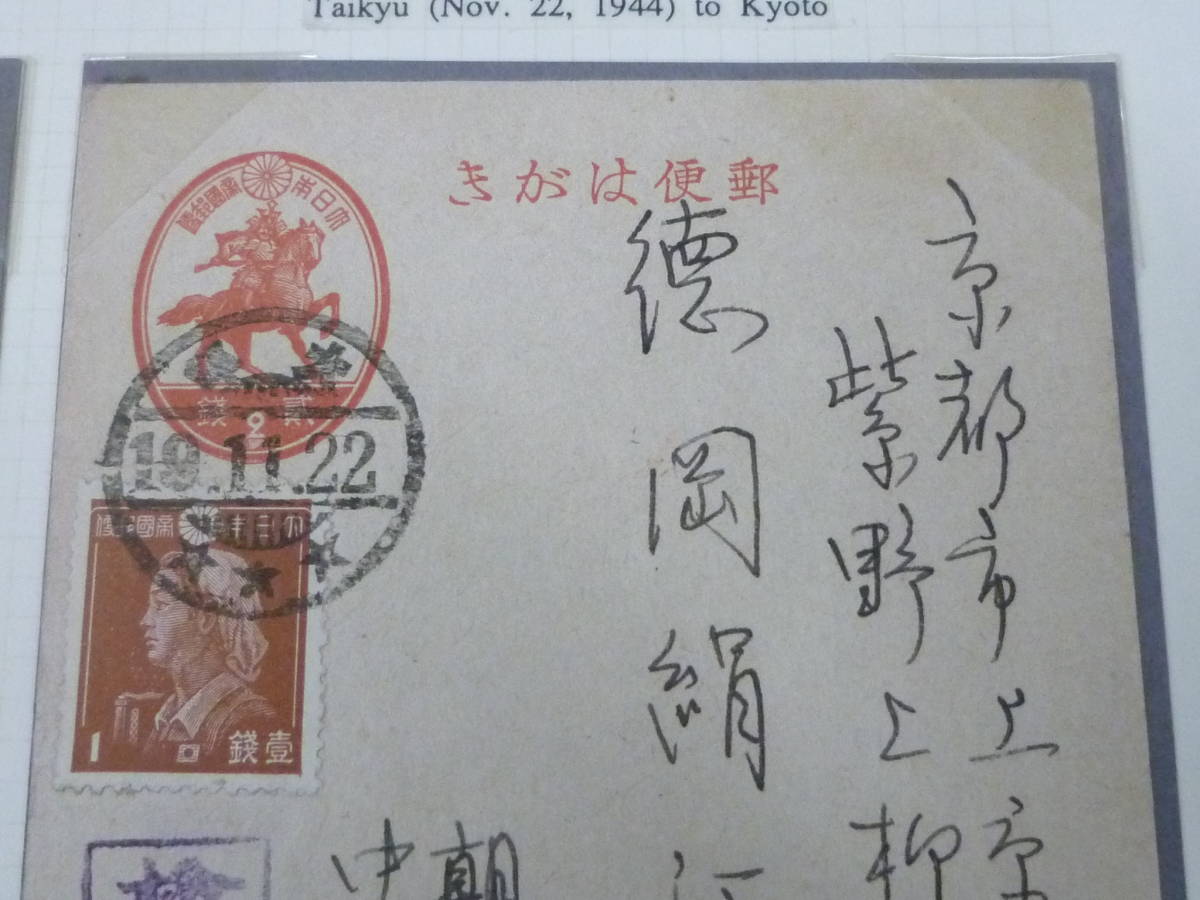 Taikyu (Nov. 22, 1944) to Kyoto
郵便はがき
大日本帝國郵便
貳錢
2
19.11.22
大日本帝國郵便
1
壹錢
京都市上京
紫野上柳
德岡絹江
朝
中